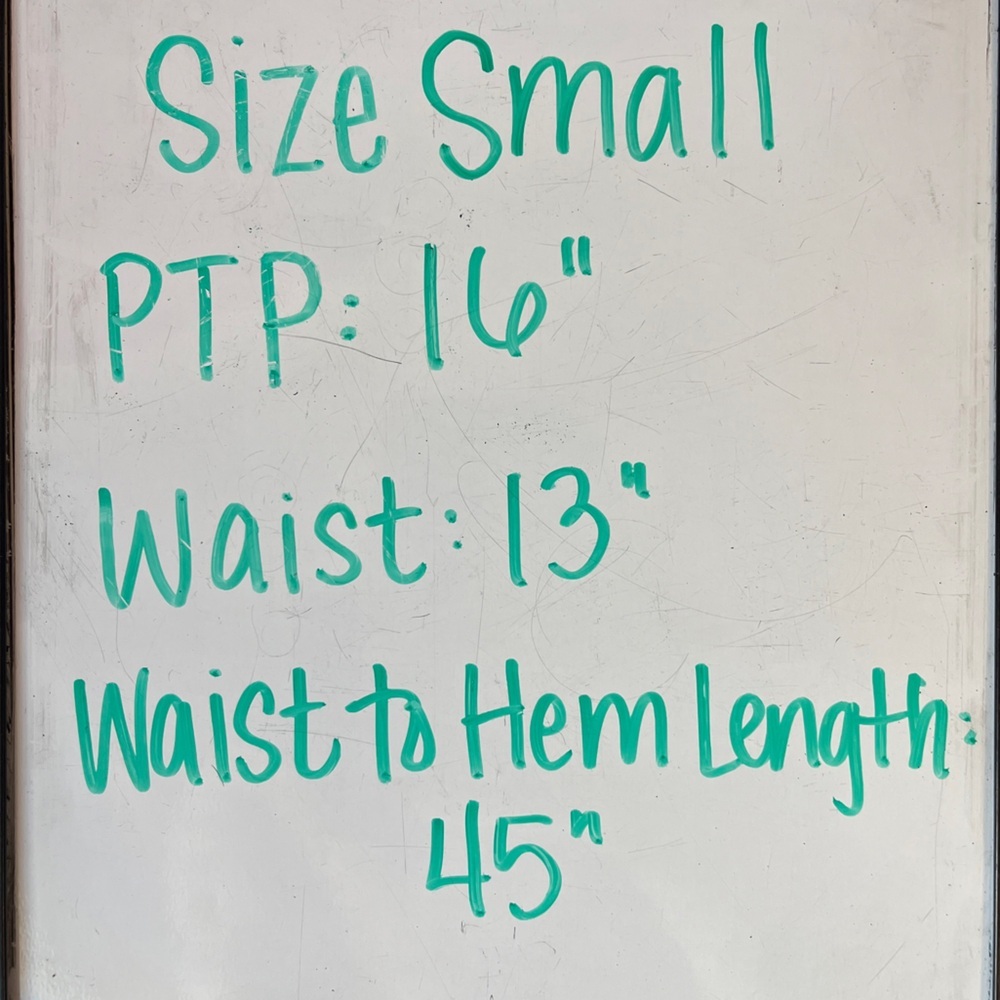 Size Small
PTP: 16"
Waist: 13"
Waist to Hem Length:
45"